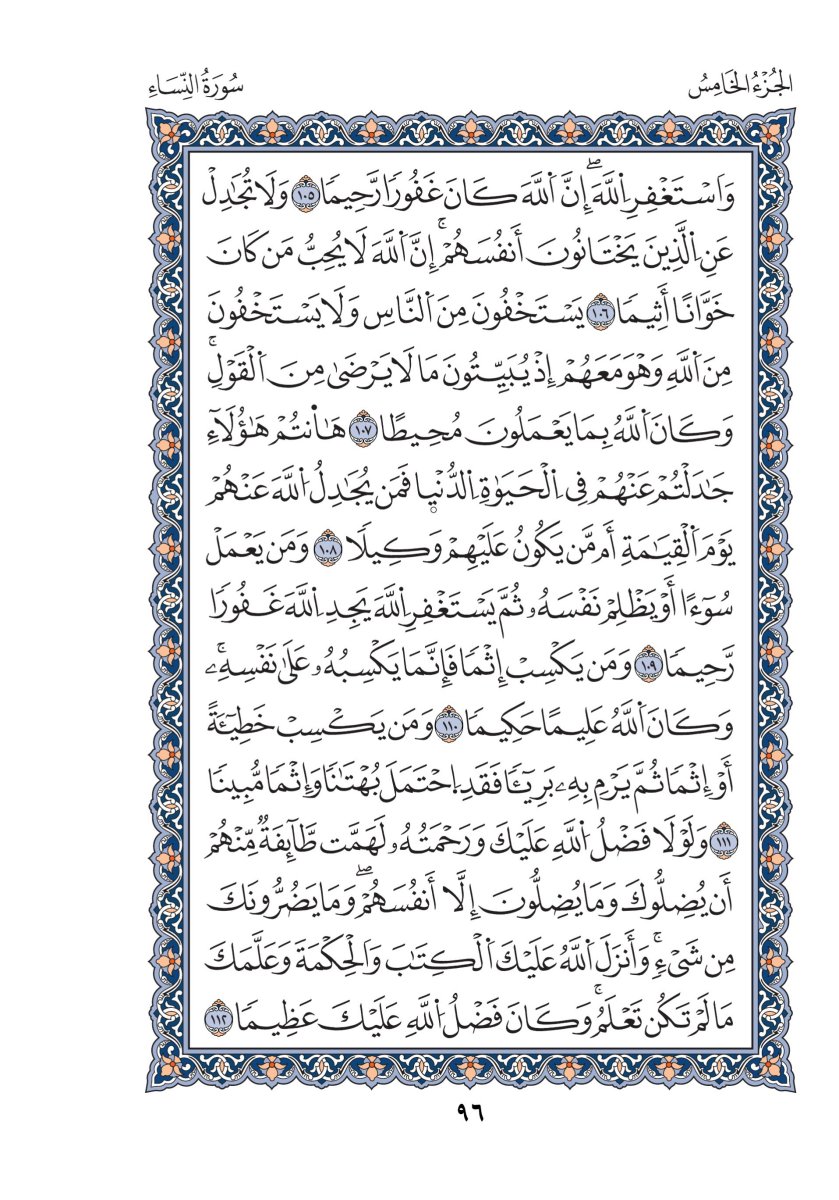 الجُزْءُ الخَامِسُ
سُورَةُ النِّسَاءِ
وَاَسْتَغْفِرِ اِللَّهَۖ إِنَّ اَللَّهَ كَانَ غَفُورٗا رَّحِيمٗا ١٠٥ وَلَا تُجَٰدِلْ
عَنِ اِلَّذِينَ يَخْتَانُونَ أَنفُسَهُمْۚ إِنَّ اَللَّهَ لَا يُحِبُّ مَن كَانَ
خَوَّانًا أَثِيمٗا ١٠٦ يَسْتَخْفُونَ مِنَ اَلنَّاسِ وَلَا يَسْتَخْفُونَ
مِنَ اَللَّهِ وَهْوَ مَعَهُمْ إِذْ يُبَيِّتُونَ مَا لَا يَرْضَىٰ مِنَ اَلْقَوْلِۚ
وَكَانَ اَللَّهُ بِمَا يَعْمَلُونَ مُحِيطًا ١٠٧ هَٰٓانتُمْ هَٰؤُلَآءِ
جَٰدَلْتُمْ عَنْهُمْ فِي اِلْحَيَوٰةِ اِلدُّنْيٜا فَمَن يُجَٰدِلُ اُللَّهَ عَنْهُمْ
يَوْمَ اَلْقِيَٰمَةِ أَم مَّن يَكُونُ عَلَيْهِمْ وَكِيلٗا ١٠٨ وَمَن يَعْمَلْ
سُوٓءًا أَوْ يَظْلِمْ نَفْسَهُۥ ثُمَّ يَسْتَغْفِرِ اِللَّهَ يَجِدِ اِللَّهَ غَفُورٗا
رَّحِيمٗا ١٠٩ وَمَن يَكْسِبْ إِثْمٗا فَإِنَّمَا يَكْسِبُهُۥ عَلَىٰ نَفْسِهِۦۚ
وَكَانَ اَللَّهُ عَلِيمًا حَكِيمٗا ١١٠ وَمَن يَكْسِبْ خَطِيٓـَٔةً
أَوْ إِثْمٗا ثُمَّ يَرْمِ بِهِۦ بَرِيٓـٔٗا فَقَدِ اِحْتَمَلَ بُهْتَٰنٗا وَإِثْمٗا مُّبِينٗا
١١١ وَلَوْلَا فَضْلُ اُللَّهِ عَلَيْكَ وَرَحْمَتُهُۥ لَهَمَّت طَّآئِفَةٞ مِّنْهُمْ
أَن يُضِلُّوكَ وَمَا يُضِلُّونَ إِلَّا أَنفُسَهُمْۖ وَمَا يَضُرُّونَكَ
مِن شَيْءٖۚ وَأَنزَلَ اَللَّهُ عَلَيْكَ اَلْكِتَٰبَ وَالْحِكْمَةَ وَعَلَّمَكَ
مَا لَمْ تَكُن تَعْلَمُۚ وَكَانَ فَضْلُ اُللَّهِ عَلَيْكَ عَظِيمٗا ١١٢
٩٦